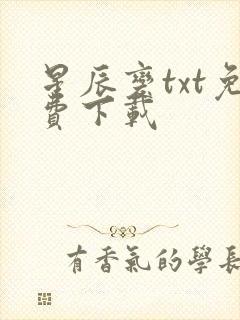 星辰變txt免
費下載
有香氣的學長